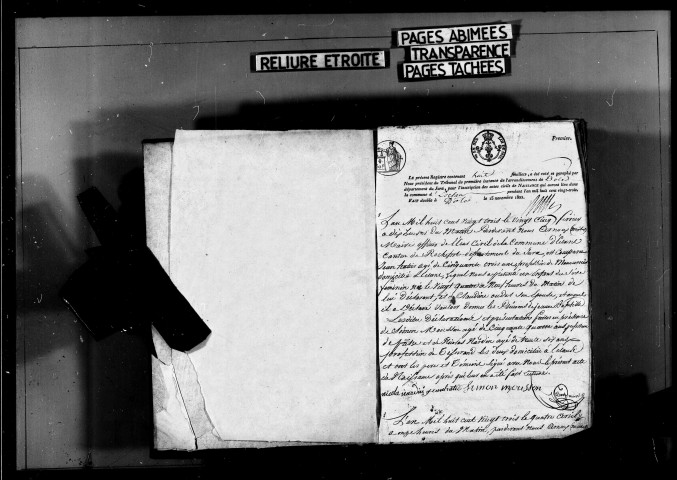 PAGES ABIMEES
RELIURE ETROITE
TRANSPARENCE
PAGES TACHÉES
Premier.
Le présent Registre contenant huit feuillets, a été coté et paraphé par
Nous président du Tribunal de première instance de l'arrondissement de Dole
département du Jura, pour l'inscription des actes civils de Naissance qui auront lieu dans
la commune d' pendant l'an mil huit cent vingt-trois.
Fait double à Dole le 15 novembre 1822.
L'an Mil huit cent vingt trois le vingt Cinq février
à dix heures du Matin Pardevant Nous
Maire officier de l'état Civil de la Commune d'
Canton de Rochefort département du Jura, est Comparu
Jean âgé de Cinquante trois ans, profession de
domicilié à lequel nous a présenté un Enfant du Sexe
féminin né le vingt quatre à Neuf heures du Matin de
lui Déclarant, et de Claudine oudet son Epouse, et auquel
il a Déclaré vouloir donner les Prénoms de
Lesdites Déclarations et présentation faites en présence
de Simon Mousson âgé de Cinquante quatre ans profession
de et de Nicolas Nardin âgé de trente six ans
profession de Tisserand les deux domiciliés à
et ont les père et Témoins signé avec Nous le présent acte
de Naissance après qu'il leur en a été fait lecture
simon mousson
L'an Mil huit cent vingt trois le quatre avril
à onze heures du Matin, pardevant Nous